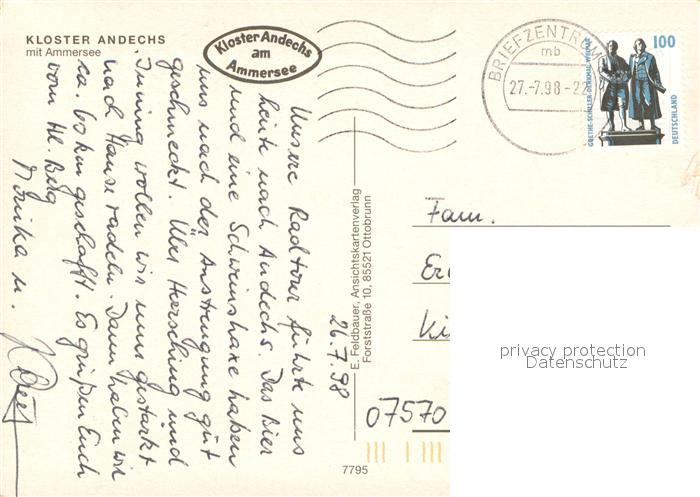 KLOSTER ANDECHS
mit Ammersee
Kloster Andechs
am
Ammersee
Unsere Radtour führte uns
heute nach Andechs. Das Bier
und eine Schweinshaxe haben
uns nach der Anstregung gut
geschmeckt. Über Herrsching und
Inning wollen wir uns gestärkt
nach Hause radeln. Dann haben wir
ca. 60 km geschafft. Es grüßen Euch
vom Hl. Berg
Monika u.
26.7.98
E. Feldbauer, Ansichtskartenverlag
Forststraße 10, 85521 Ottobrunn
BRIEFZENTRUM
mb
27.-7.98-22
100
GOETHE-SCHILLER-DENKMAL WEIMAR
DEUTSCHLAND
Fam.
07570
7795
privacy protection
Datenschutz